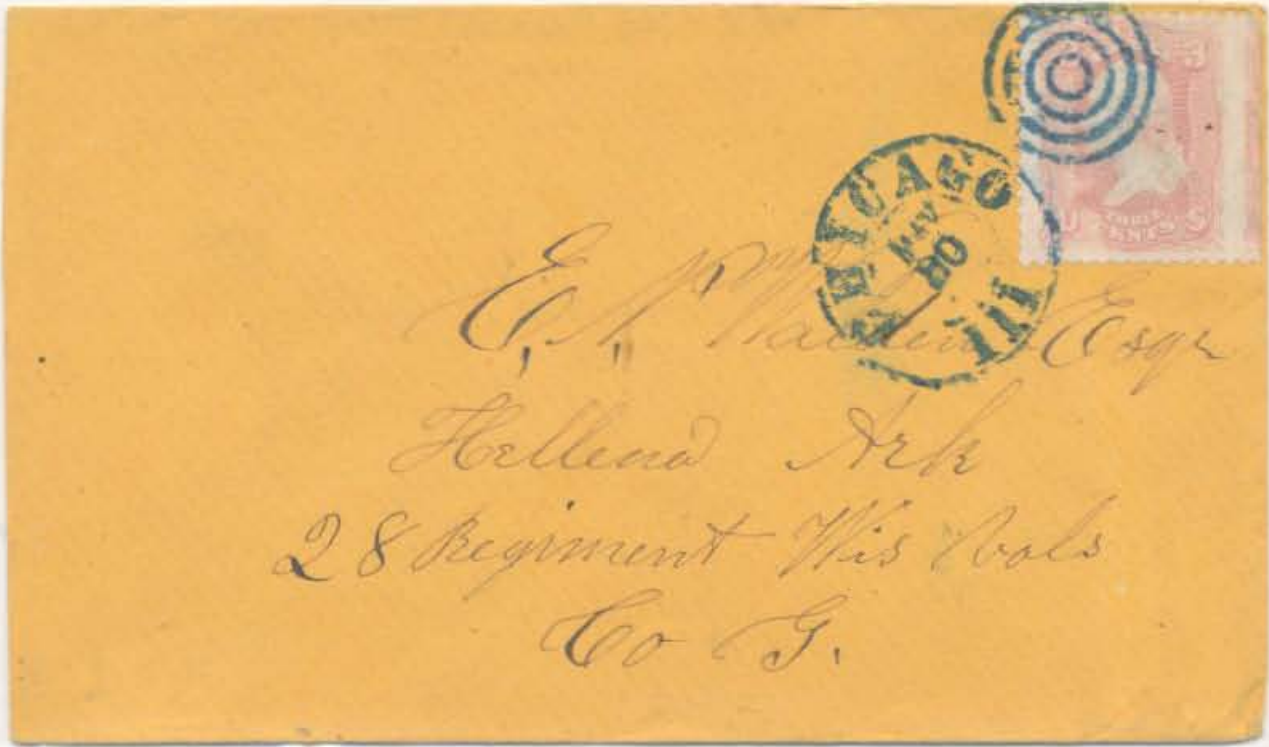 CHICAGO
MAY
30
Ill
U S
THREE
CENTS
E. N. Esqr
Hellena Ark
28 Regiment Wis Vols
Co G.